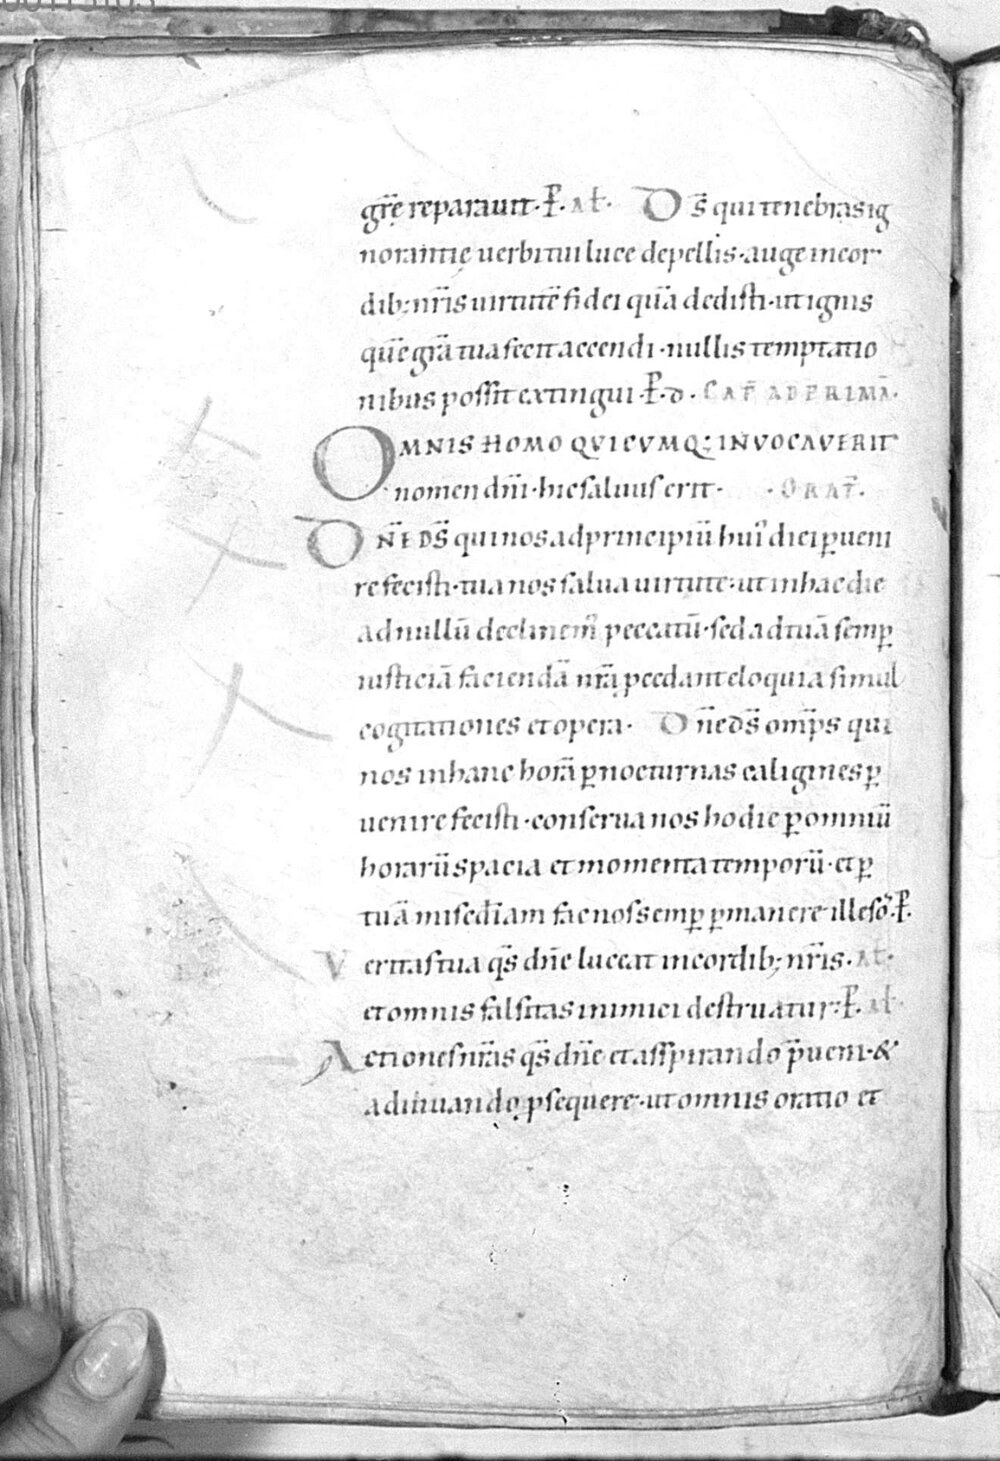 grę̄ reparauit· P̄· Al̄· D̄s̄ qui tenebras ig
norantię uerbi tui luce depellis· auge in cor
dib; nr̄is uirtutē fidei quā dedisti· ut ignis
quē gr̄a tua fecit accendi· nullis temptatio
nibus possit extingui· P̄· d· CAP̄ AD PRIMĀ·
OMNIS HOMO QVICVMQ; INVOCAVERIT
nomen dn̄i· hic saluus erit· · ORAT̄·
DN̄E DS̄ qui nos ad principiū hui' diei ꝑueni
re fecisti· tua nos salua uirtute· ut in hac die
ad nullū declinem' peccatū· sed ad tuā semꝑ
iusticiā faciendā nr̄a ꝓcedant eloquia simul
cogitationes et opera· Dn̄e ds̄ omp̄s qui
nos in hanc horā ꝑ nocturnas caligines ꝑ
uenire fecisti· conserua nos hodie ꝑ omniū
horarū spacia et momenta temporū· et ꝑ
tuā mis̄ediam fac nos semꝑ ꝑmanere illesos· P̄·
Veritas tua qs̄ dn̄e luceat in cordib; nr̄is· Al̄·
et omnis falsitas inimici destruatur· P̄· Al̄·
Actiones nr̄as qs̄ dn̄e et asspirando p̄ueni· &
adiuuando ꝓsequere· ut omnis oratio et